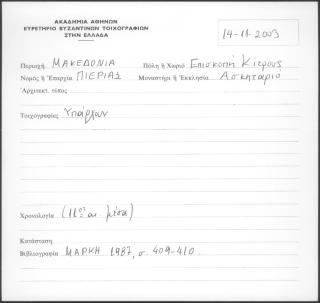 ΑΚΑΔΗΜΙΑ ΑΘΗΝΩΝ
ΕΥΡΕΤΗΡΙΟ ΒΥΖΑΝΤΙΝΩΝ ΤΟΙΧΟΓΡΑΦΙΩΝ
ΣΤΗΝ ΕΛΛΑΔΑ
14-11-2003
Περιοχή ΜΑΚΕΔΟΝΙΑ Πόλη ἤ Χωριό Επισκοπή Κίτρους
Νομός ἤ Ἐπαρχία ΠΙΕΡΙΑΣ Μοναστήρι ἤ Ἐκκλησία Ασκηταριό
Ἀρχιτεκτ. τύπος
Τοιχογραφίες Υπάρχουν
Χρονολογία (11ος αι. μέσα)
Κατάσταση
Βιβλιογραφία ΜΑΡΚΗ 1987, σ. 409-410.